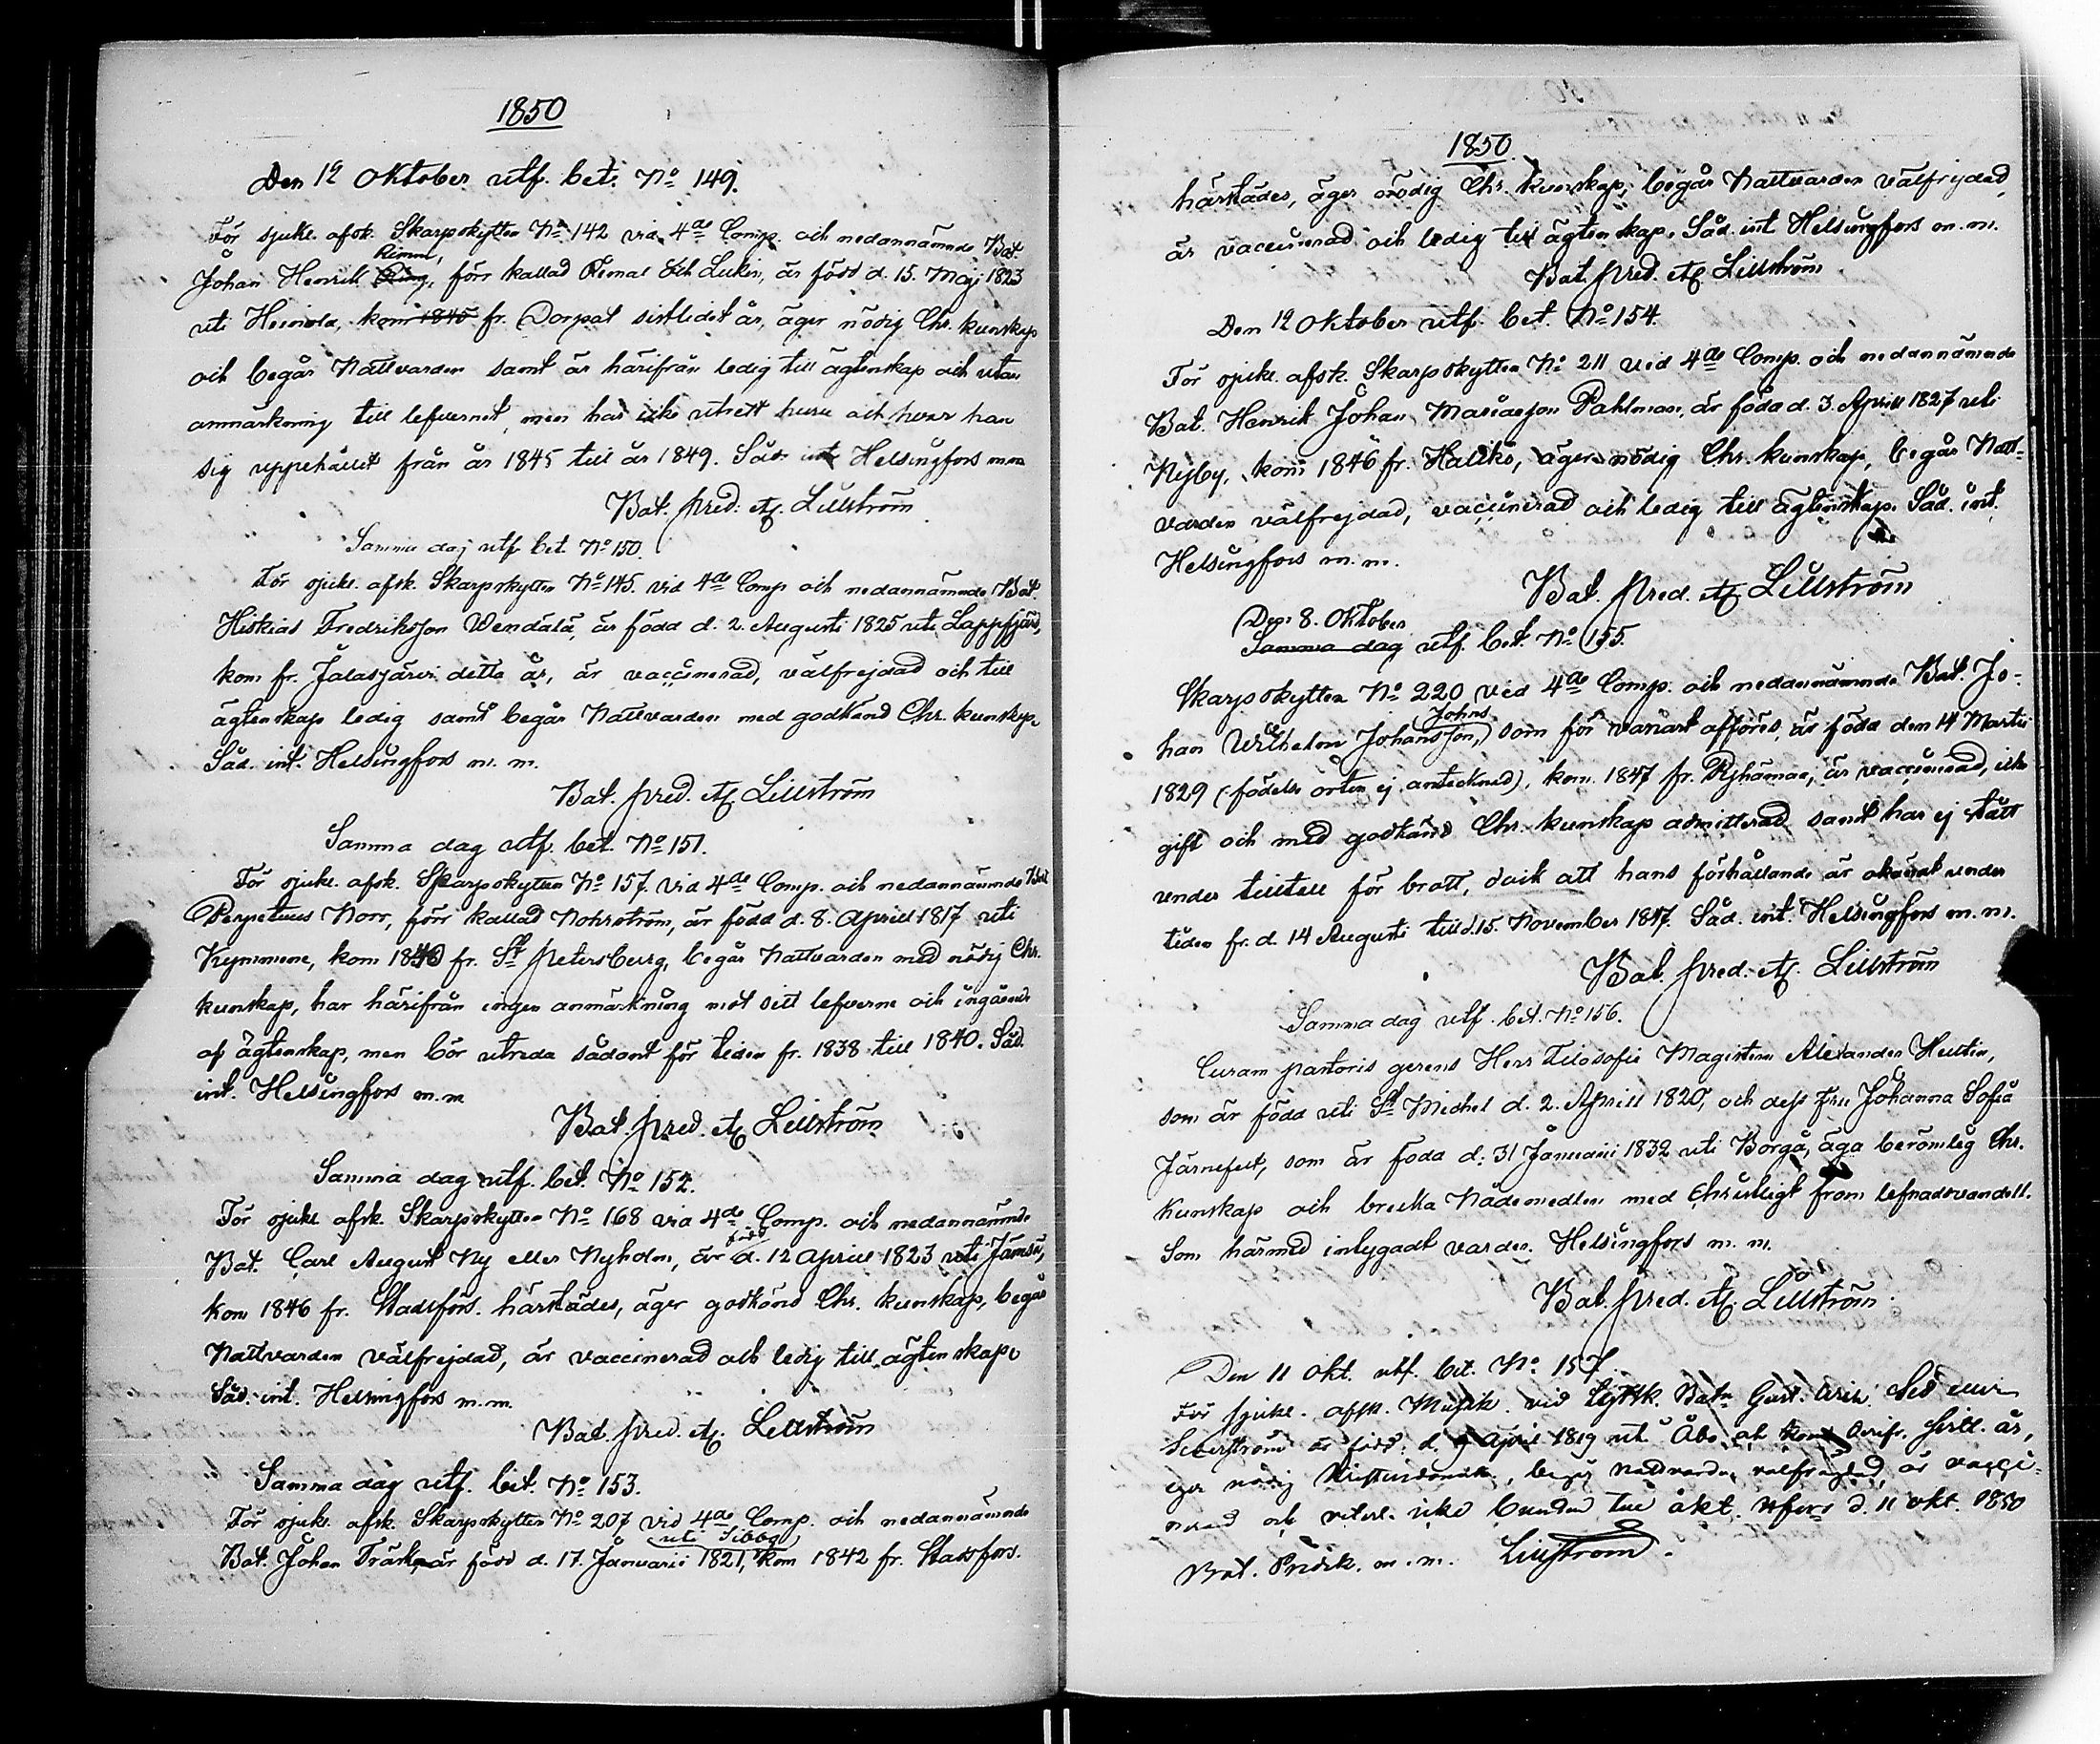 1850
Den 12 Oktober utf. bet. No 149.
För sjukl. afsk. Skarpskytten No 142 vid 4de Comp. och nedannämnde Bat.
Rimm,
Johan Henrik Ring, förr kallad Rimal och Lukin, är född d. 15. Maji 1823
uti Heinola, kom 1845 fr. Dorpat sistlidet år, äger nödig Chr. kunskap
och begår Nattvarden samt är härifrån ledig till ägtenskap och utan
anmärkning till lefvernet, men har icke utrett huru och hvar han
sig uppehållit från år 1845 till år 1849. Såd. int. Helsingfors m.m
Bat. pred. Lillström
Samma dag utf. bet. No 150.
För sjukl. afsk. Skarpskytten No 145. vid 4de Comp och nedannämnde Bat.
Hiskias Fredriksson Wendälä, är född d. 2. Augusti 1825 uti Lappfjärd,
kom fr. Jalasjärvi detta år, är vaccinerad, välfrejdad och till
ägtenskap ledig samt begår Nattvarden med godkänd Chr. kunskap.
Såd. int. Helsingfors m. m.
Bat. pred. Lillström
Samma dag utf. bet. No 151.
För sjukl. afsk. Skarpskytten No 157. vid 4de Comp. och nedannämnde Bat
Perpetuus Norr, förr kallad Nohrström, är född d. 8. April 1817 uti
Kymmene, kom 1840 fr. St Petersburg, begår Nattvarden med nödig Chr.
kunskap, har härifrån ingen anmärkning mot sitt lefverne och ingående
af ägtenskap, men bör utreda sådant för tiden fr. 1838 till 1840. Såd.
int. Helsingfors m.m
Bat. pred. Lillström
Samma dag utf. bet. No 152.
För sjukl. afsk. Skarpskytten No 168 vid 4de Comp. och nedannämnde
född
Bat. Carl August Ny eller Nyholm, är d. 12 April 1823 uti Jämsä,
kom 1846 fr. Stadsförs. härstädes, äger godkänd Chr. kunskap, begår
Nattvarden välfrejdad, är vaccinerad och ledig till ägtenskap.
Såd. int. Helsingfors m.m.
Bat. pred. Lillström
Samma dag utf. bet. No 153.
För sjukl. afsk. Skarpskytten No 207 vid 4de Comp. och nedannämnde
uti Sibbo,
Bat. Johan Träsk, är född d. 17. Januarii 1821, kom 1842 fr. Stadsförs.
1850
härstädes, äger nödig Chr. kunskap, begår Nattvarden välfrejdad,
är vaccinerad och ledig till ägtenskap. Såd. int Helsingfors m. m.
Bat. pred. Lillström
Den 12 Oktober utf. bet. No 154.
För sjukl. afsk. Skarpskytten No 211 vid 4de Comp. och nedannämnde
Bat. Henrik Johan Mariasson Pahlman, är född d. 3. April 1827 uti
Nyby, kom 1846 fr. Haliko, äger nödig Chr. kunskap, begår Natt-
varden välfrejdad, vaccinerad och ledig till ägtenskap. Såd. int.
Helsingfors m. m.
Bat. pred. Lillström
Den 8. Oktober
Samma dag utf. bet. No 155.
Skarpskytten No 220 vid 4de Comp. och nedannämnde Bat. Jo-
Johns
han Wilhelm Johansson, som för vanart afföres, är född den 14 Martii
1829 (födelse orten ej antecknad), kom 1847 fr. Pyhämaa, är vaccinerad, icke
gift och med godkänd Chr. kunskap admitterad samt har ej stått
under tilltal för brott, dock att hans förhållande är okändt under
tiden fr. d. 14 Augusti till d. 15. November 1847. Såd. int. Helsingfors m. m.
Bat. pred. Lillström
Samma dag utf. bet. No 156.
Curam pastoris gerens Herr Filosofie Magistern Alexander Hultin,
som är född uti St Michel d. 2. April 1820, och dess Fru Johanna Sofia
Järnefelt, som är född d. 31 Januarii 1832 uti Borgå, äga berömlig Chr.
Kunskap och bruka Nådemedlen med Christligt from lefnadsvandel.
Som härmed intygadt varder. Helsingfors m. m.
Bat. pred. Lillström
Den 11 Okt. utf. bet. No 157.
För sjukl. afsk. Musik. vid Bat. Gust.
är född d. 9 April 1819 uti Åbo och kom år,
nödig begår Nattvarden välfrejdad, är vacci-
nerad och icke bunden d. 11 okt. 1850
Bat. m. m. Lillström.